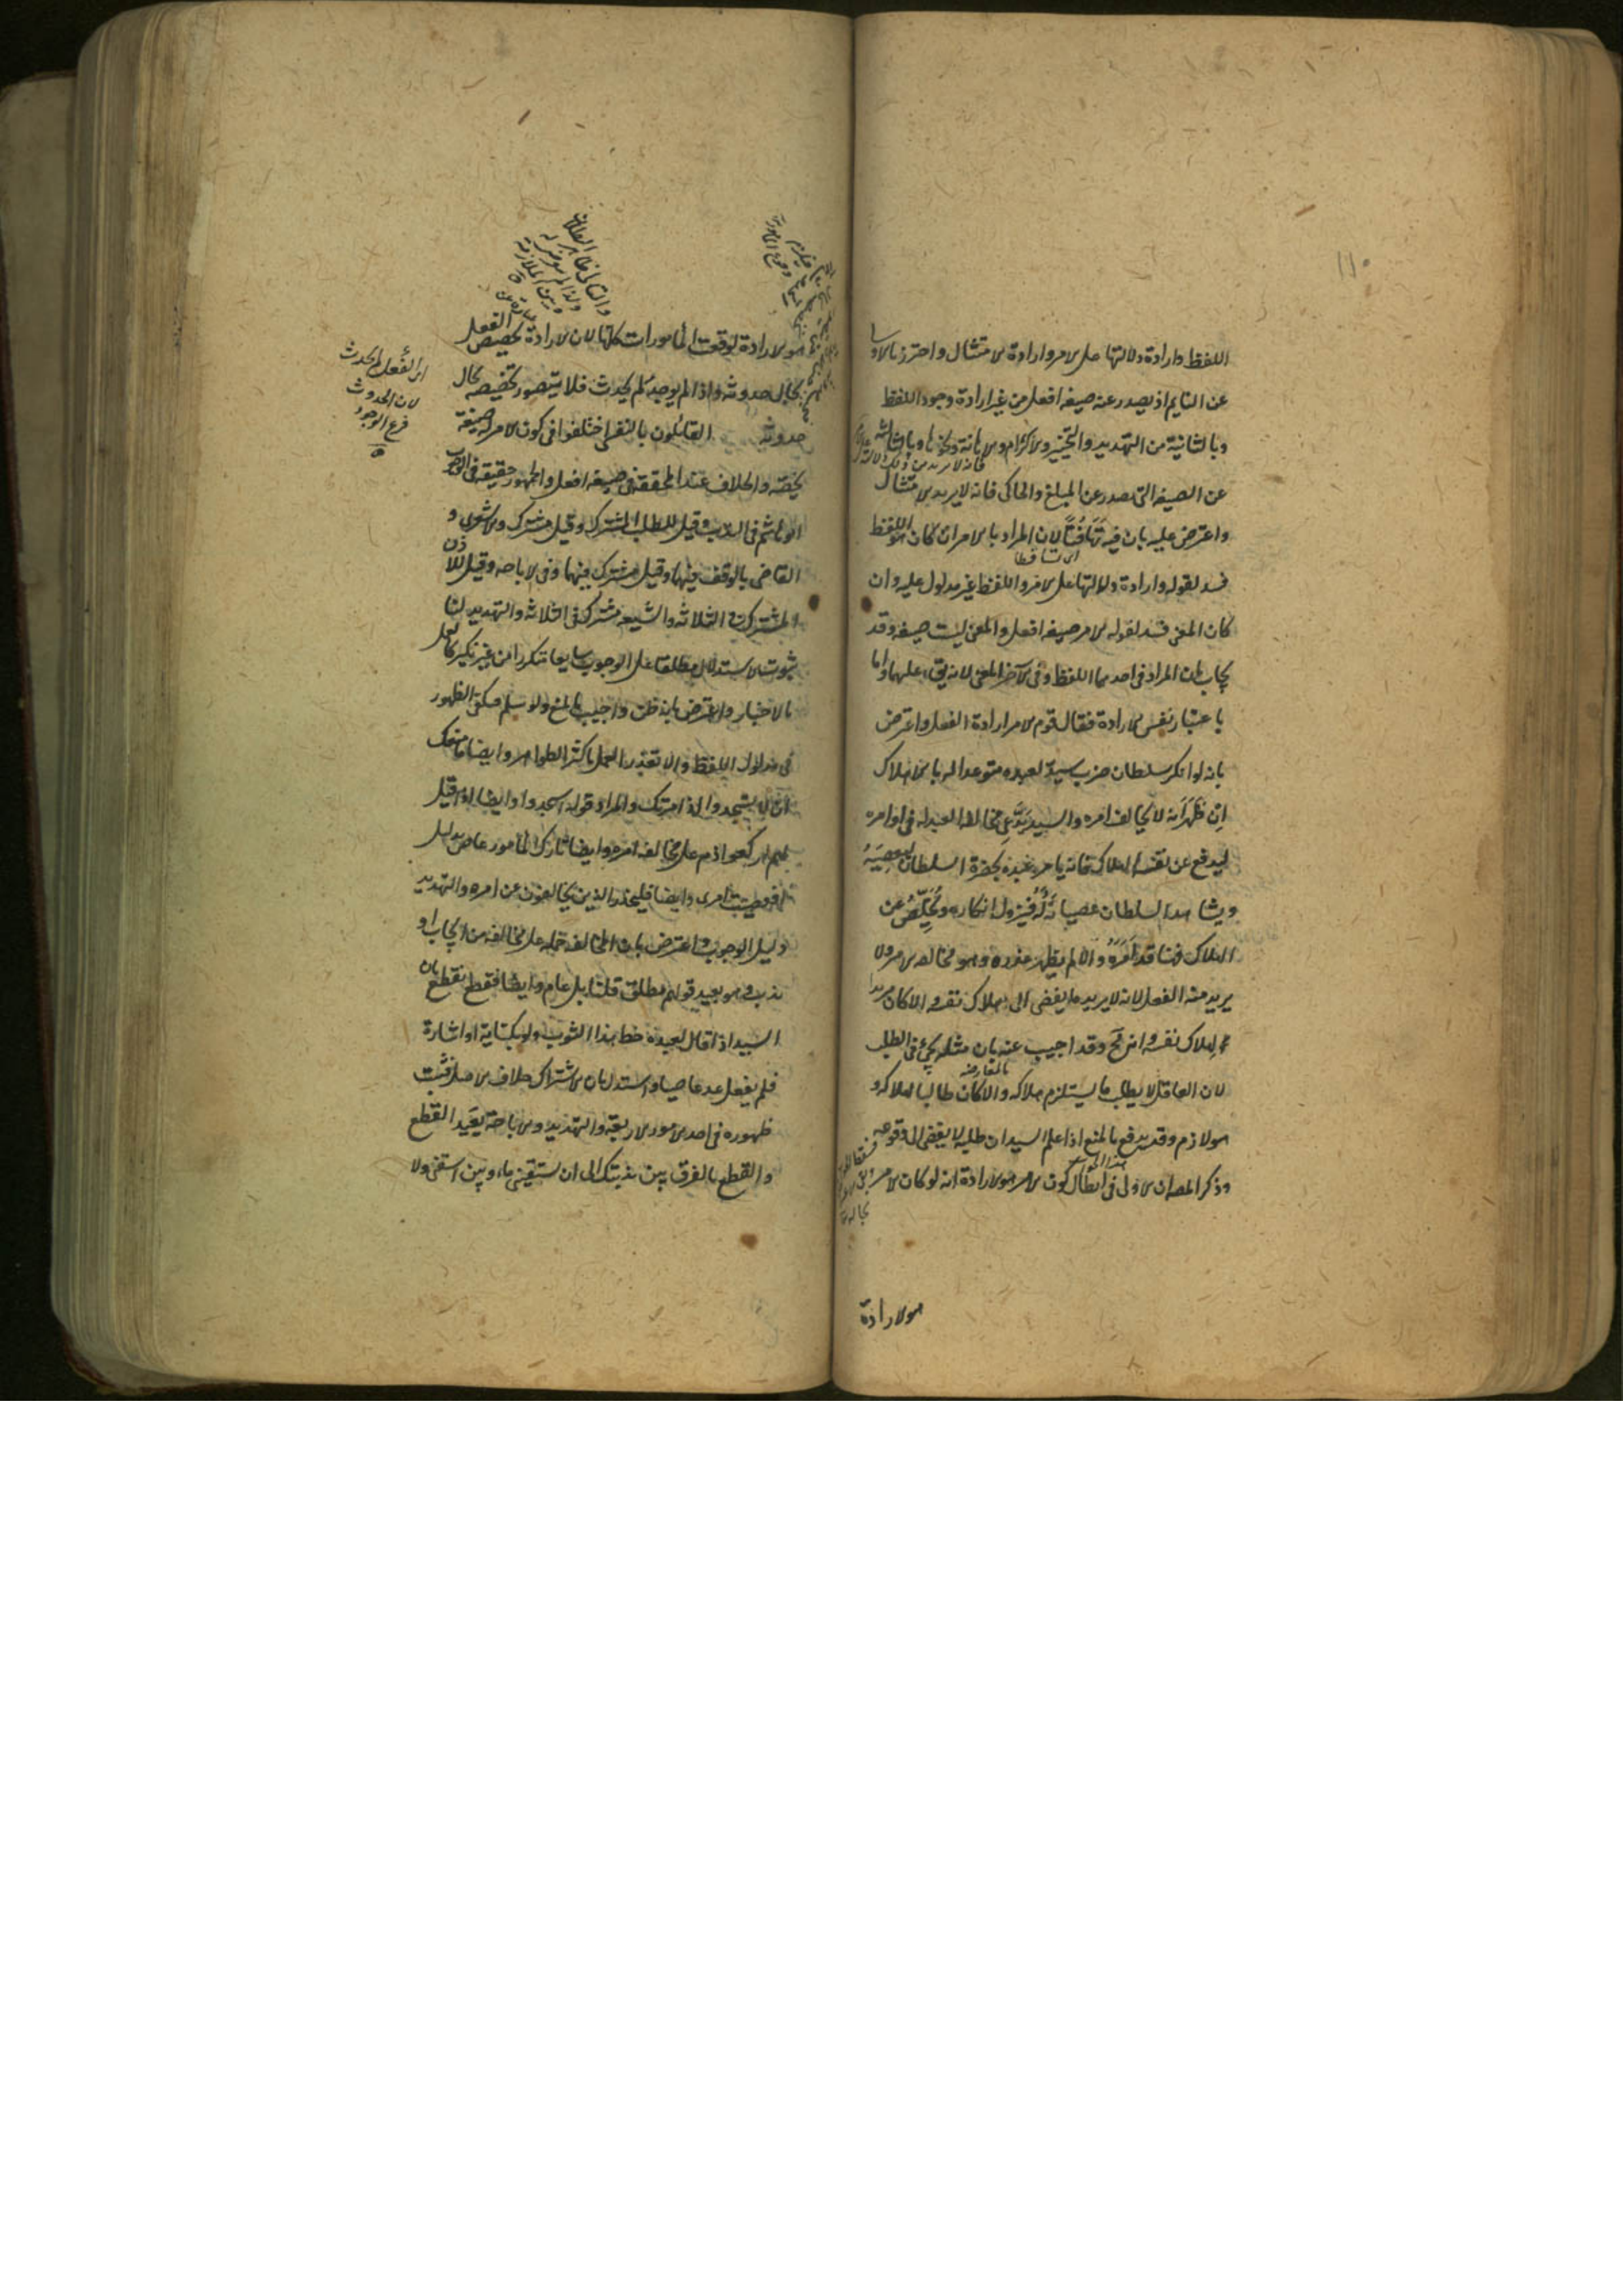 ١١٠
اللفظ وارادة دلالتها على الامر وارادة الامتثال واحترز بالاولى
عن النايم اذ يصدر عنه صيغه افعل من غير ارادة وجود اللفظ
وبالثانية من التهديد والتخيير والاكرام والاهانة ونحوها وبالثالثه
عن الصيغه التى تصدر عن المبلغ والحاكى فانه لا يريد الامتثال
واعترض عليه بان فيه تهافتا لان المراد بالامر ان كان هو اللفظ
اى تساقطا
فسد لقوله وارادة دلالتها على الامر واللفظ غير مدلول عليه وان
كان المعنى فسد لقوله الامر صيغه افعل والمعنى ليست صيغه وقد
يجاب بان المراد فى احدهما اللفظ وفى الآخر المعنى لانه يق عليهما واما
باعتبار نفس الارادة فقال قوم الامر ارادة الفعل واعترض
بانه لو انكر سلطان ضرب سيد لعبده متوعدا له بالاهلاك
ان ظهر انه لا يخالف امره والسيد يدعى مخالفه العبد له فى اوامره
ليدفع عن نفسه الهلاك فانه يامر عبده بحضرة السلطان ليعصيه
ويشاهد السلطان عصيانه له فيزول انكاره ويخلص عن
الهلاك فهنا قد امره والا لم يظهر عذره وهو مخالفه الامر ولا
يريد منه الفعل لانه لا يريد ما يفضى الى هلاك نفسه والا كان مريدا
هلاك نفسه وانه مح وقد اجيب عنه بان مثله يجئ فى الطلب
بالمعارضه
لان العاقل لا يطلب ما يستلزم هلاكه والا كان طالبا لهلاكه و
هو لازم وقد يدفع بالمنع اذا علم السيد ان طلبه لا يفضى الى وقوعه
وذكر المص ان الاولى فى ابطال كون الامر هو الارادة انه لو كان الامر
هو الارادة
هو الارادة لوقعت المامورات كلها لان الارادة تخصيص الفعل
بحال حدوثه واذا لم يوجد لم يحدث فلا يتصور تخصيصه بحال
حدوثه القائلون بالنفسى اختلفوا فى كون الامر له صيغة
تخصه والخلاف عند المحققين فى صيغه افعل والجمهور حقيقه فى الوجوب
ابو هاشم فى الندب وقيل للطلب المشترك وقيل مشترك والاشعرى و
القاضى بالوقف فيهما وقيل مشترك بينهما وفى الاباحه وقيل للاذن
المشترك فى الثلاثه والشيعه مشترك فى الثلاثه والتهديد لنا
ثبوت الاستدلال بمطلقها على الوجوب شايعا متكررا من غير نكير كالعمل
بالاخبار واعترض بانه ظن واجيب بالمنع ولو سلم فيكفى الظهور
فى مدلول اللفظ والا تعذر العمل باكثر الظواهر وايضا ما منعك
ان لا تسجد اذ امرتك والمراد قوله اسجدوا وايضا اذا قيل
لهم اركعوا ذم على مخالفه امره وايضا تارك المامور عاص بدليل
افعصيت امرى وايضا فليحذر الذين يخالفون عن امره والتهديد
دليل الوجوب واعترض بان المخالفه حمله على مخالفه من ايجاب او
ندب وهو بعيد قولهم مطلق قلنا بل عام وايضا فنقطع بان
السيد اذا قال لعبده خط هذا الثوب ولو بكتابة او اشارة
فلم يفعل عد عاصيا واستدل بان الاشتراك خلاف الاصل فثبت
ظهوره فى احد الامور الاربعة والتهديد والاباحة بعيد القطع
والقطع بالفرق بين ندبتك الى ان تسقينى ماء وبين اسقنى ولا
اى الفعل لم يحدث
لان الحدوث
فرع الوجود